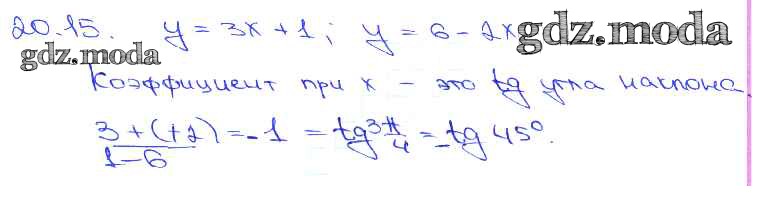 20.15. y = 3x + 1; y = 6 - 2x gdz.moda
gdz.moda
Коэффициент при x - это tg угла наклона.
3 + (+2) / 1 - 6 = -1 = tg 3π/4 = -tg 45°.